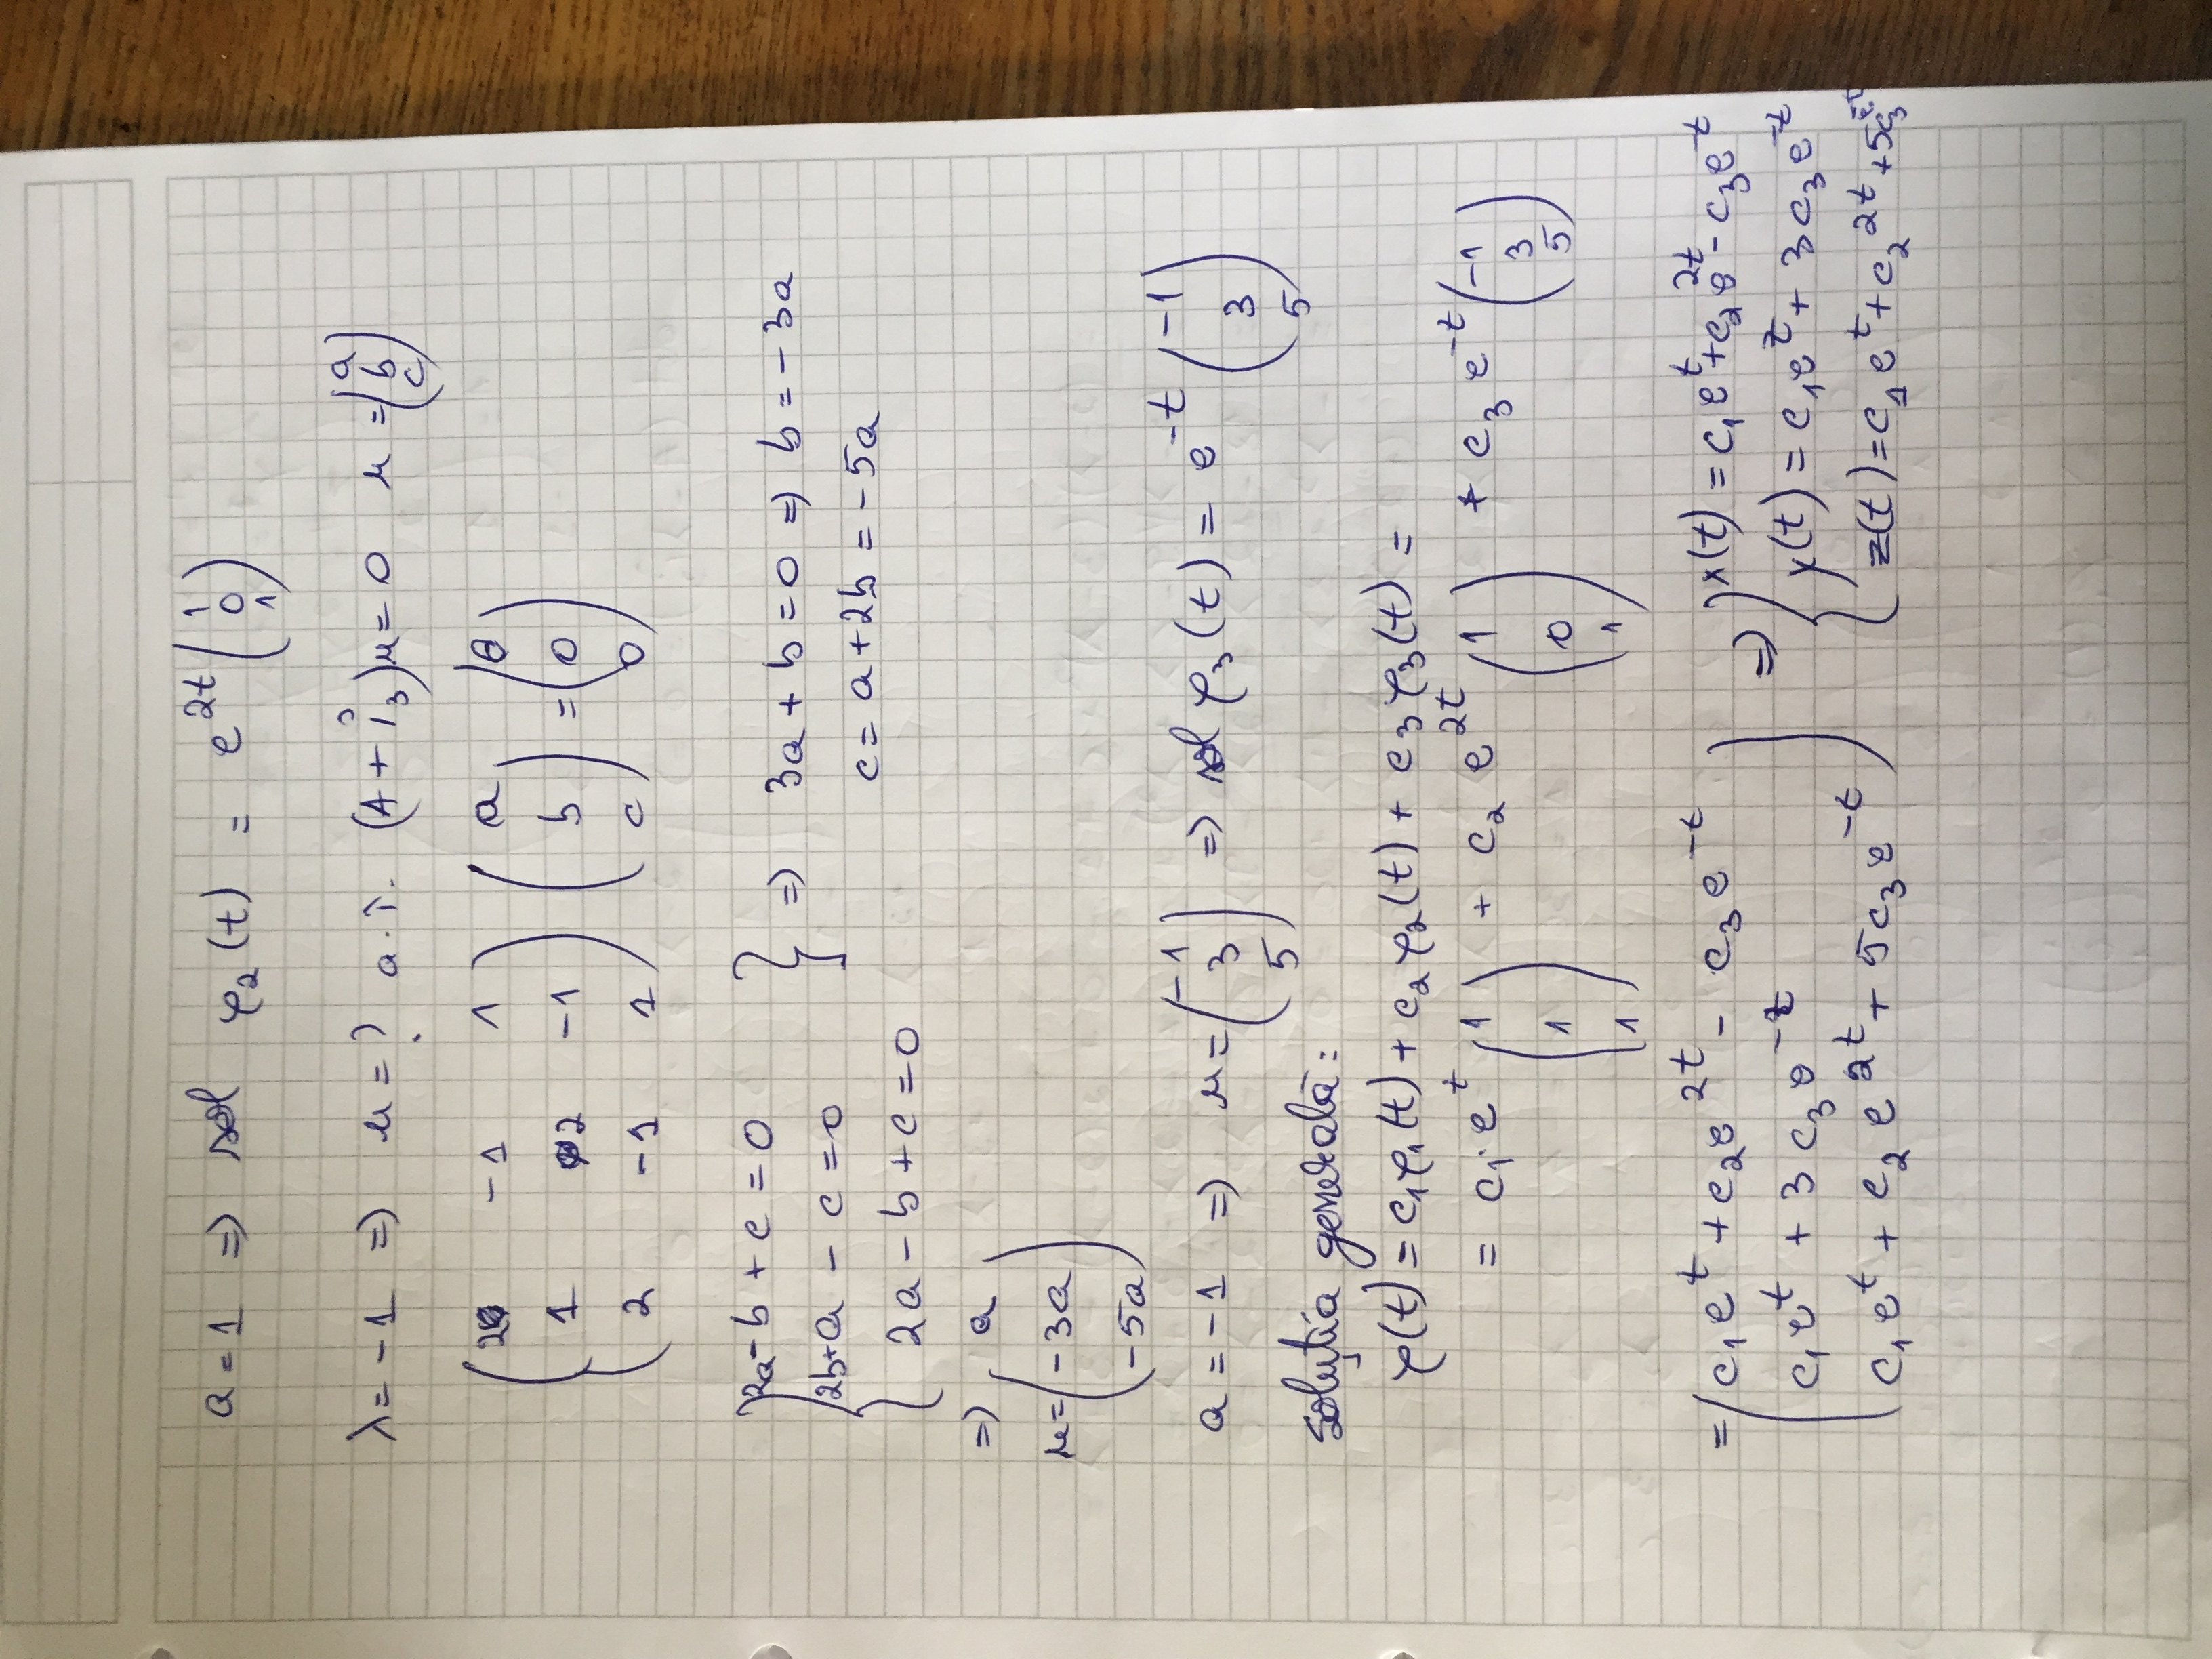 a = 1 => sol φ₂(t) = e^{2t} (1 0 1)
λ = -1 => u = ? a.î. (A + I₃)u = 0 u = (a b c)
(2 -1 1) (a) = (0)
(1 2 -1) (b) (0)
(2 -1 1) (c) (0)
{ 2a - b + c = 0
2b + a - c = 0 } => 3a + b = 0 => b = -3a
2a - b + c = 0
c = a + 2b = -5a
=>
u = (a -3a -5a)
a = -1 => u = (-1 3 5) => sol φ₃(t) = e^{-t} (-1 3 5)
Soluția generală:
φ(t) = c₁φ₁(t) + c₂φ₂(t) + c₃φ₃(t) =
= c₁·e^t (1 1 1) + c₂ e^{2t} (1 0 1) + c₃ e^{-t} (-1 3 5)
= (c₁e^t + c₂e^{2t} - c₃e^{-t}) => { x(t) = c₁e^t + c₂e^{2t} - c₃e^{-t}
(c₁e^t + 3c₃e^{-t}) y(t) = c₁e^t + 3c₃e^{-t}
(c₁e^t + c₂e^{2t} + 5c₃e^{-t}) z(t) = c₁e^t + c₂^{2t} + 5c₃